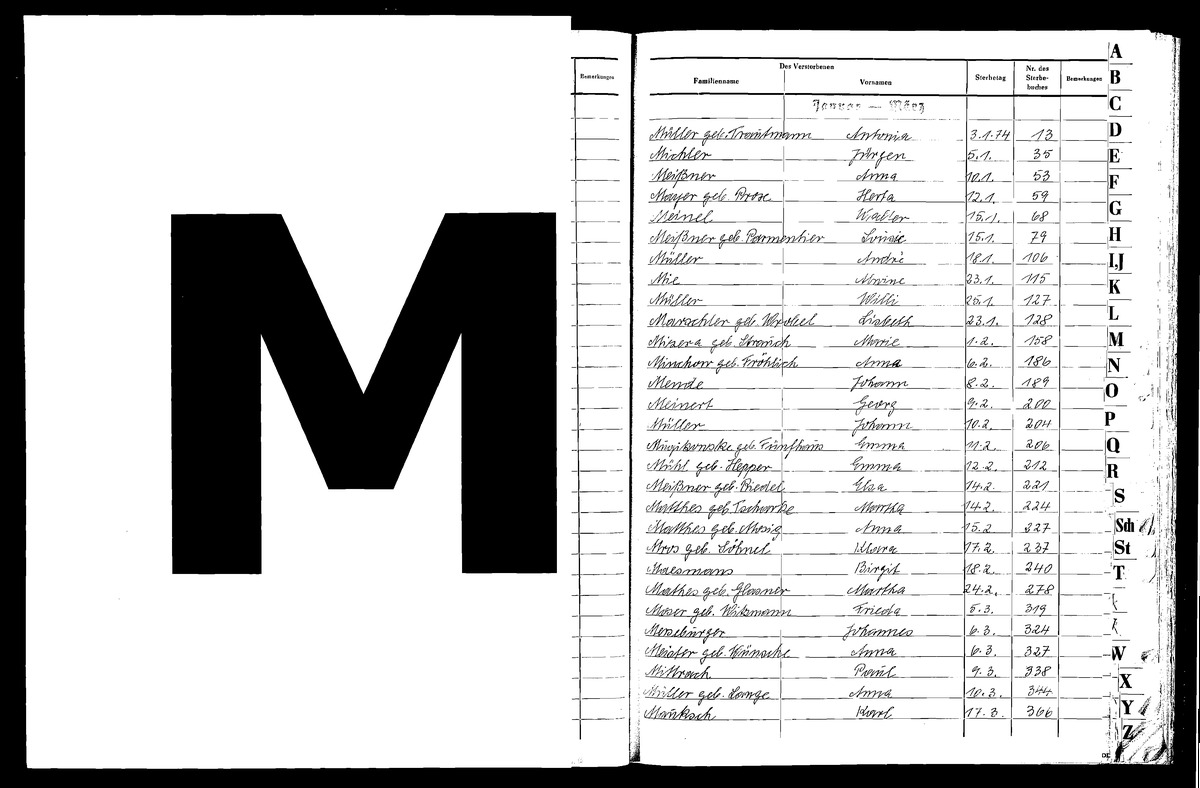 M
Bemerkungen
Des Verstorbenen
Familienname Vornamen Sterbetag Nr. des Sterbe-buches Bemerkungen
Januar — März
Müller geb. Trautmann Antonia 3.1.74 13
Michler Jürgen 5.1. 35
Meißner Anna 10.1. 53
Mayer geb. Prose Herta 12.1. 59
Meinel Walter 15.1. 68
Meißner geb. Parmentier Louise 15.1. 79
Müller André 18.1. 106
Mie 23.1. 115
Müller Willi 25.1. 127
Marschler geb. Lisbeth 23.1. 128
Misera geb. Strauch Marie 1.2. 158
Minchow geb. Fröhlich Anna 6.2. 186
Mende Johann 8.2. 189
Meinert Georg 9.2. 200
Müller Johann 10.2. 204
geb. Fünfhaus Emma 11.2. 206
Mühl geb. Hepper Emma 12.2. 212
Meißner geb. Riedel Elsa 14.2. 221
Matthes geb. Tscharke Martha 14.2. 224
Matthes geb. Mosig Anna 15.2 227
Mros geb. Söhnel Klara 17.2. 237
Maesmans Birgit 18.2. 240
Mathes geb. Glasner Martha 24.2. 278
Moser geb. Witzmann Frieda 5.3. 319
Merseburger Johannes 6.3. 324
Meister geb. Wünsche Anna 6.3. 327
Mittrach Paul 9.3. 338
Müller geb. Lange Anna 10.3. 344
Mauksch Karl 17.3. 366
A
B
C
D
E
F
G
H
I,J
K
L
M
N
O
P
Q
R
S
Sch
St
T
W
X
Y
Z